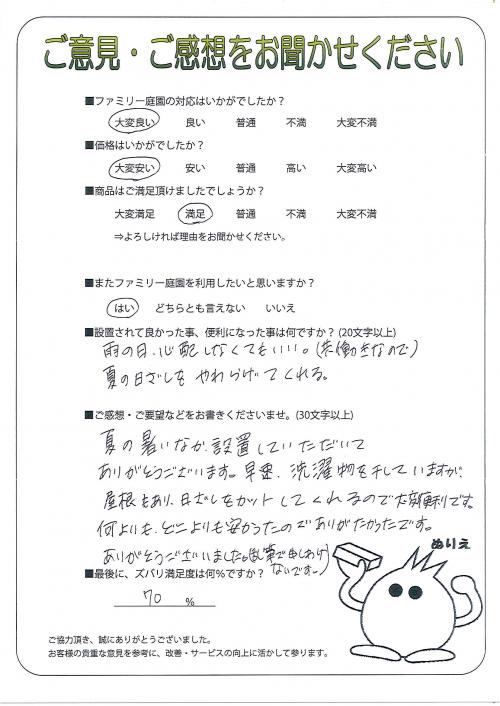 ご意見・ご感想をお聞かせください
■ファミリー庭園の対応はいかがでしたか？
大変良い 良い 普通 不満 大変不満
■価格はいかがでしたか？
大変安い 安い 普通 高い 大変高い
■商品はご満足頂けましたでしょうか？
大変満足 満足 普通 不満 大変不満
⇒よろしければ理由をお聞かせください。
■またファミリー庭園を利用したいと思いますか？
はい どちらとも言えない いいえ
■設置されて良かった事、便利になった事は何ですか？(20文字以上)
雨の日、心配しなくてもいい。(共働きなので)
夏の日ざしを やわらげてくれる。
■ご感想・ご要望などをお書きくださいませ。(30文字以上)
夏の暑いなか、設置していただいて
ありがとうございます。早速、洗濯物を干していますが、
屋根もあり、日ざしをカットしてくれるので大変便利です。
何よりも、どこよりも安かったのでありがたかったです。
ありがとうございました。(乱筆で申しわけ
ないです。)
ぬりえ
■最後に、ズバリ満足度は何%ですか？
70 %
ご協力頂き、誠にありがとうございました。
お客様の貴重な意見を参考に、改善・サービスの向上に活かして参ります。